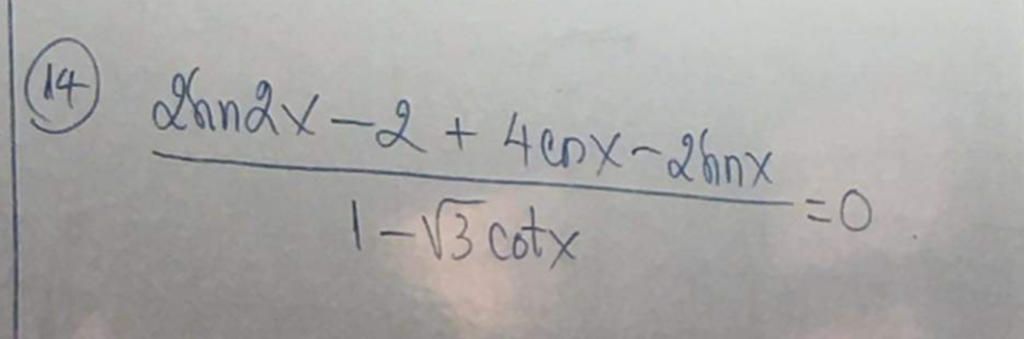 14
2sin2x - 2 + 4cosx - 2sinx
= 0
1 - √3 cotx